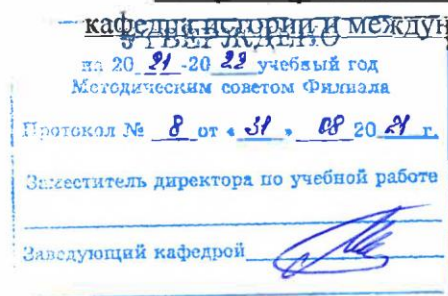 кафедра истории и междун
УТВЕРЖДЕНО
на 2021-2022 учебный год
Методическим советом Филиала
Протокол № 8 от «31» 08 2021 г.
Заместитель директора по учебной работе
Заведующий кафедрой